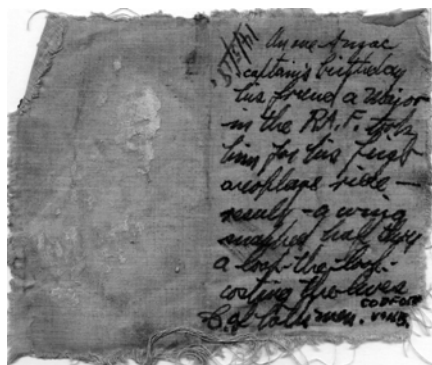 An one Anzac
captain's birthday
his friend a Major
in the R.A.F. took
him for his first
aeroplane ride —
result - a wing
snapped half thro
a loop-the-loop.
costing the lives
of both men.